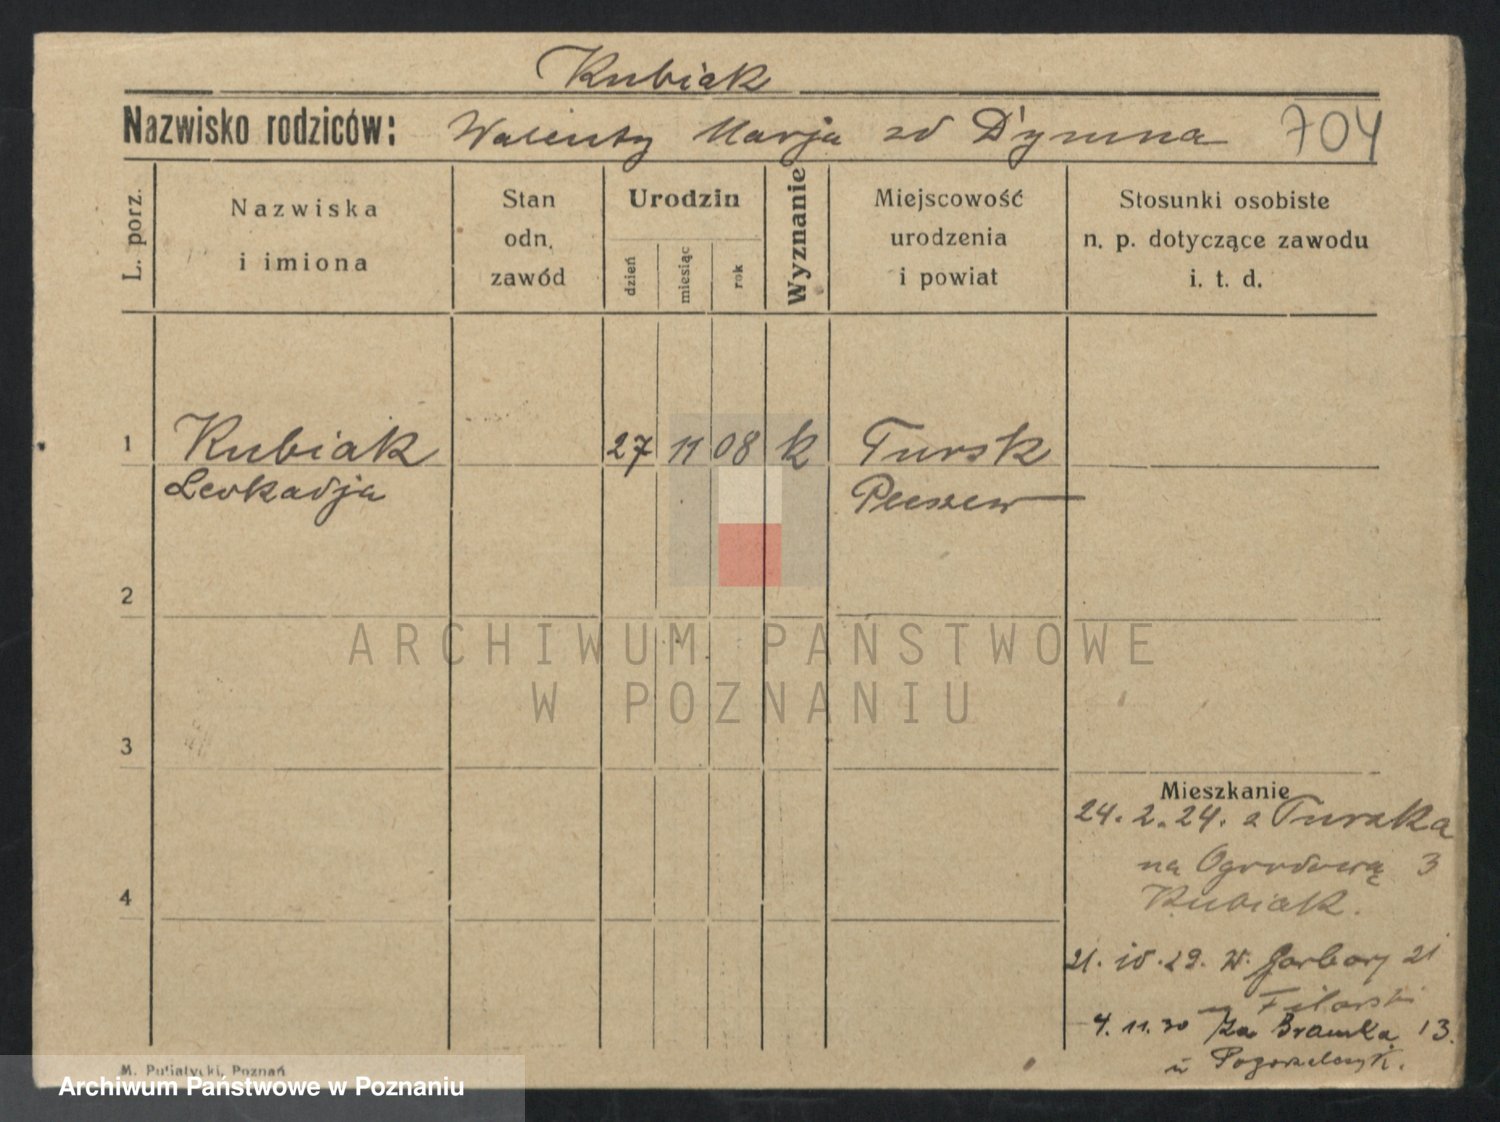 Kubiak
Nazwisko rodziców: Walenty Marja zd Dymna 704
L. porz.
Nazwiska
i imiona
Stan
odn.
zawód
Urodzin
dzień
miesiąc
rok
Wyznanie
Miejscowość
urodzenia
i powiat
Stosunki osobiste
n. p. dotyczące zawodu
i. t. d.
1 Kubiak 27 11 08 k Tursk
Leokadja Pleszew
2
3
4
Mieszkanie
24. 2. 24. z Turska
na Ogrodową 3
Kubiak.
21. 10. 29. W. Garbary 21
u Filarski
4. 11. 30 Za Bramka 13.
u Pogorzelczyk.
M. Putiatycki, Poznań
ARCHIWUM PAŃSTWOWE
W POZNANIU
Archiwum Państwowe w Poznaniu